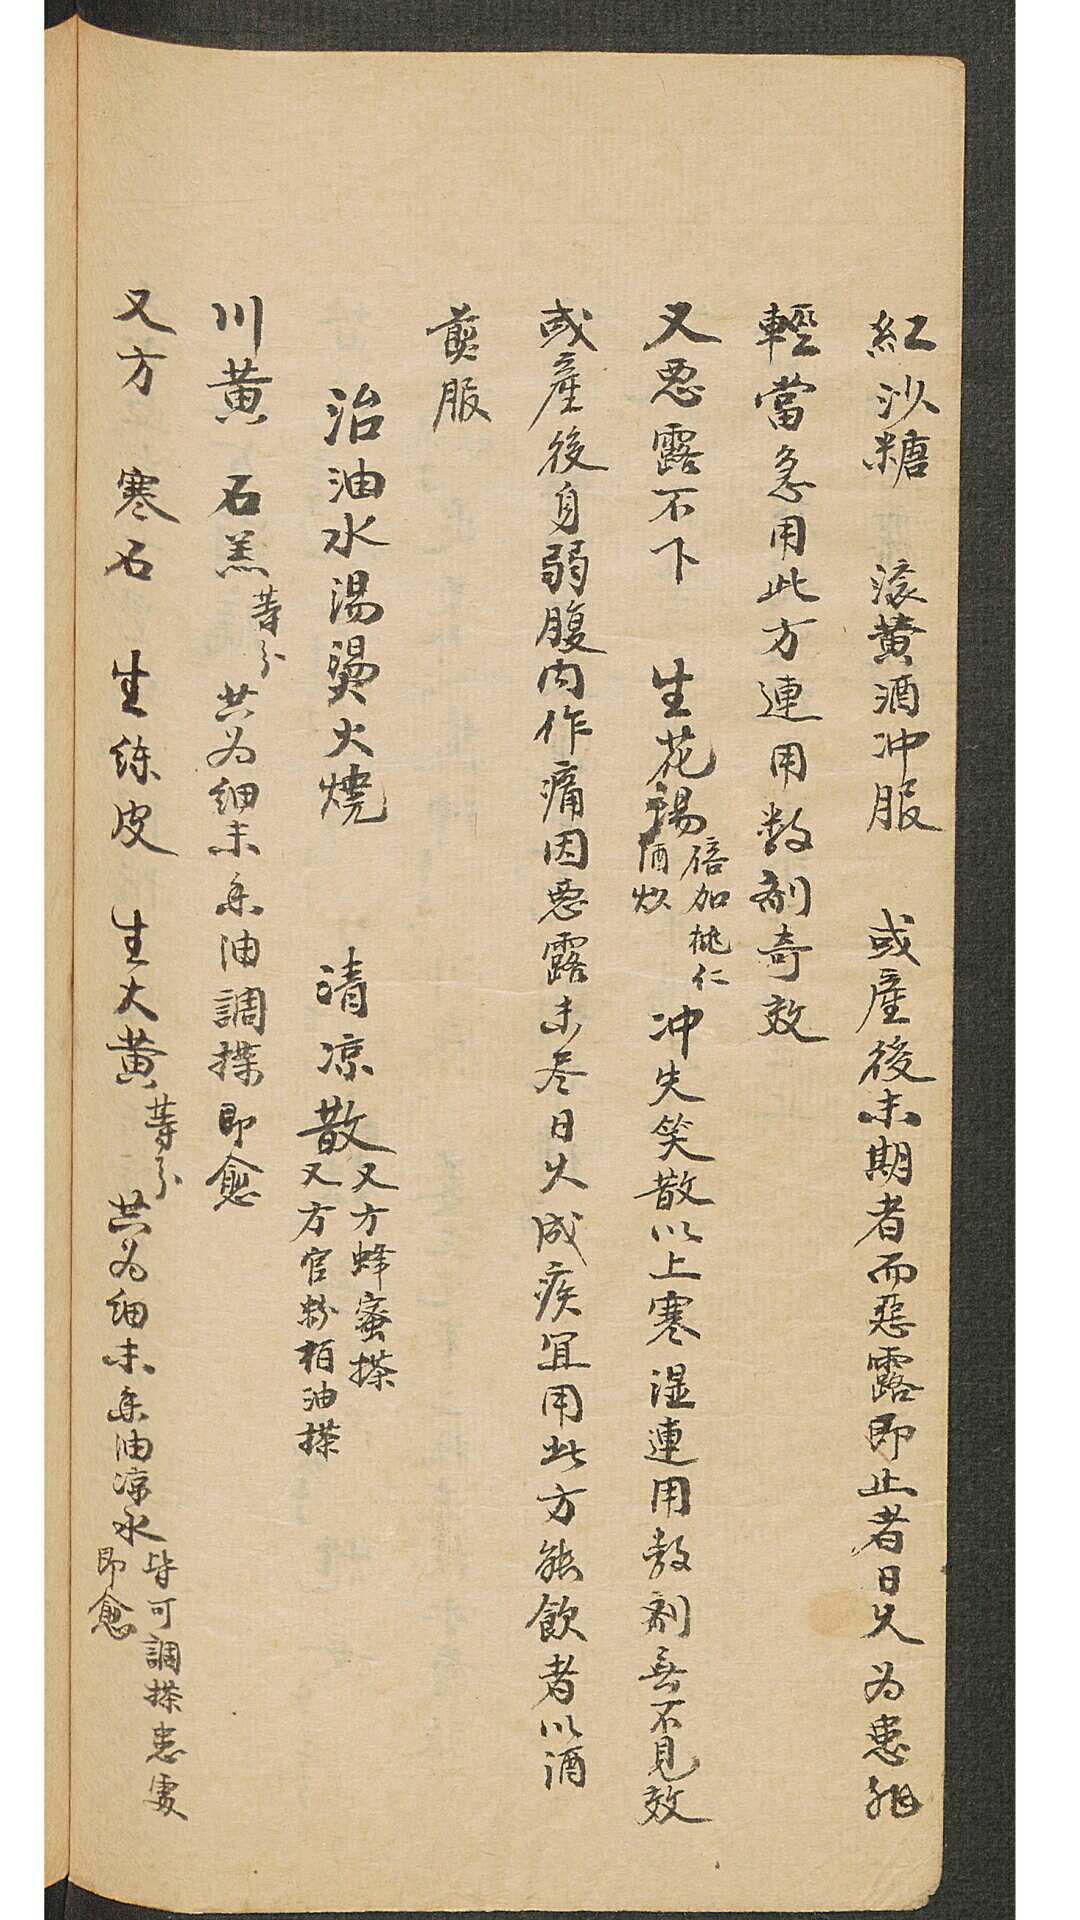 紅沙糖　滾黄酒冲服　或產後未期者而惡露即止者日久為患非
輕當急用此方連用数剤奇效
又恶露不下　生花湯
倍加桃仁
酒炊
冲失笑散以上寒湿連用数剤無不見效
或產後身弱腹内作痛因恶露未尽日久成疾宜用此方能飲者以酒
煎服
治油水湯燙火燒　清凉散
又方蜂蜜搽
又方官粉柏油搽
川黄　石羔
等分
共为细末香油調搽即愈
又方　寒石　生練皮　生大黄
等分
共为细末香油凉水
皆可調搽患處
即愈